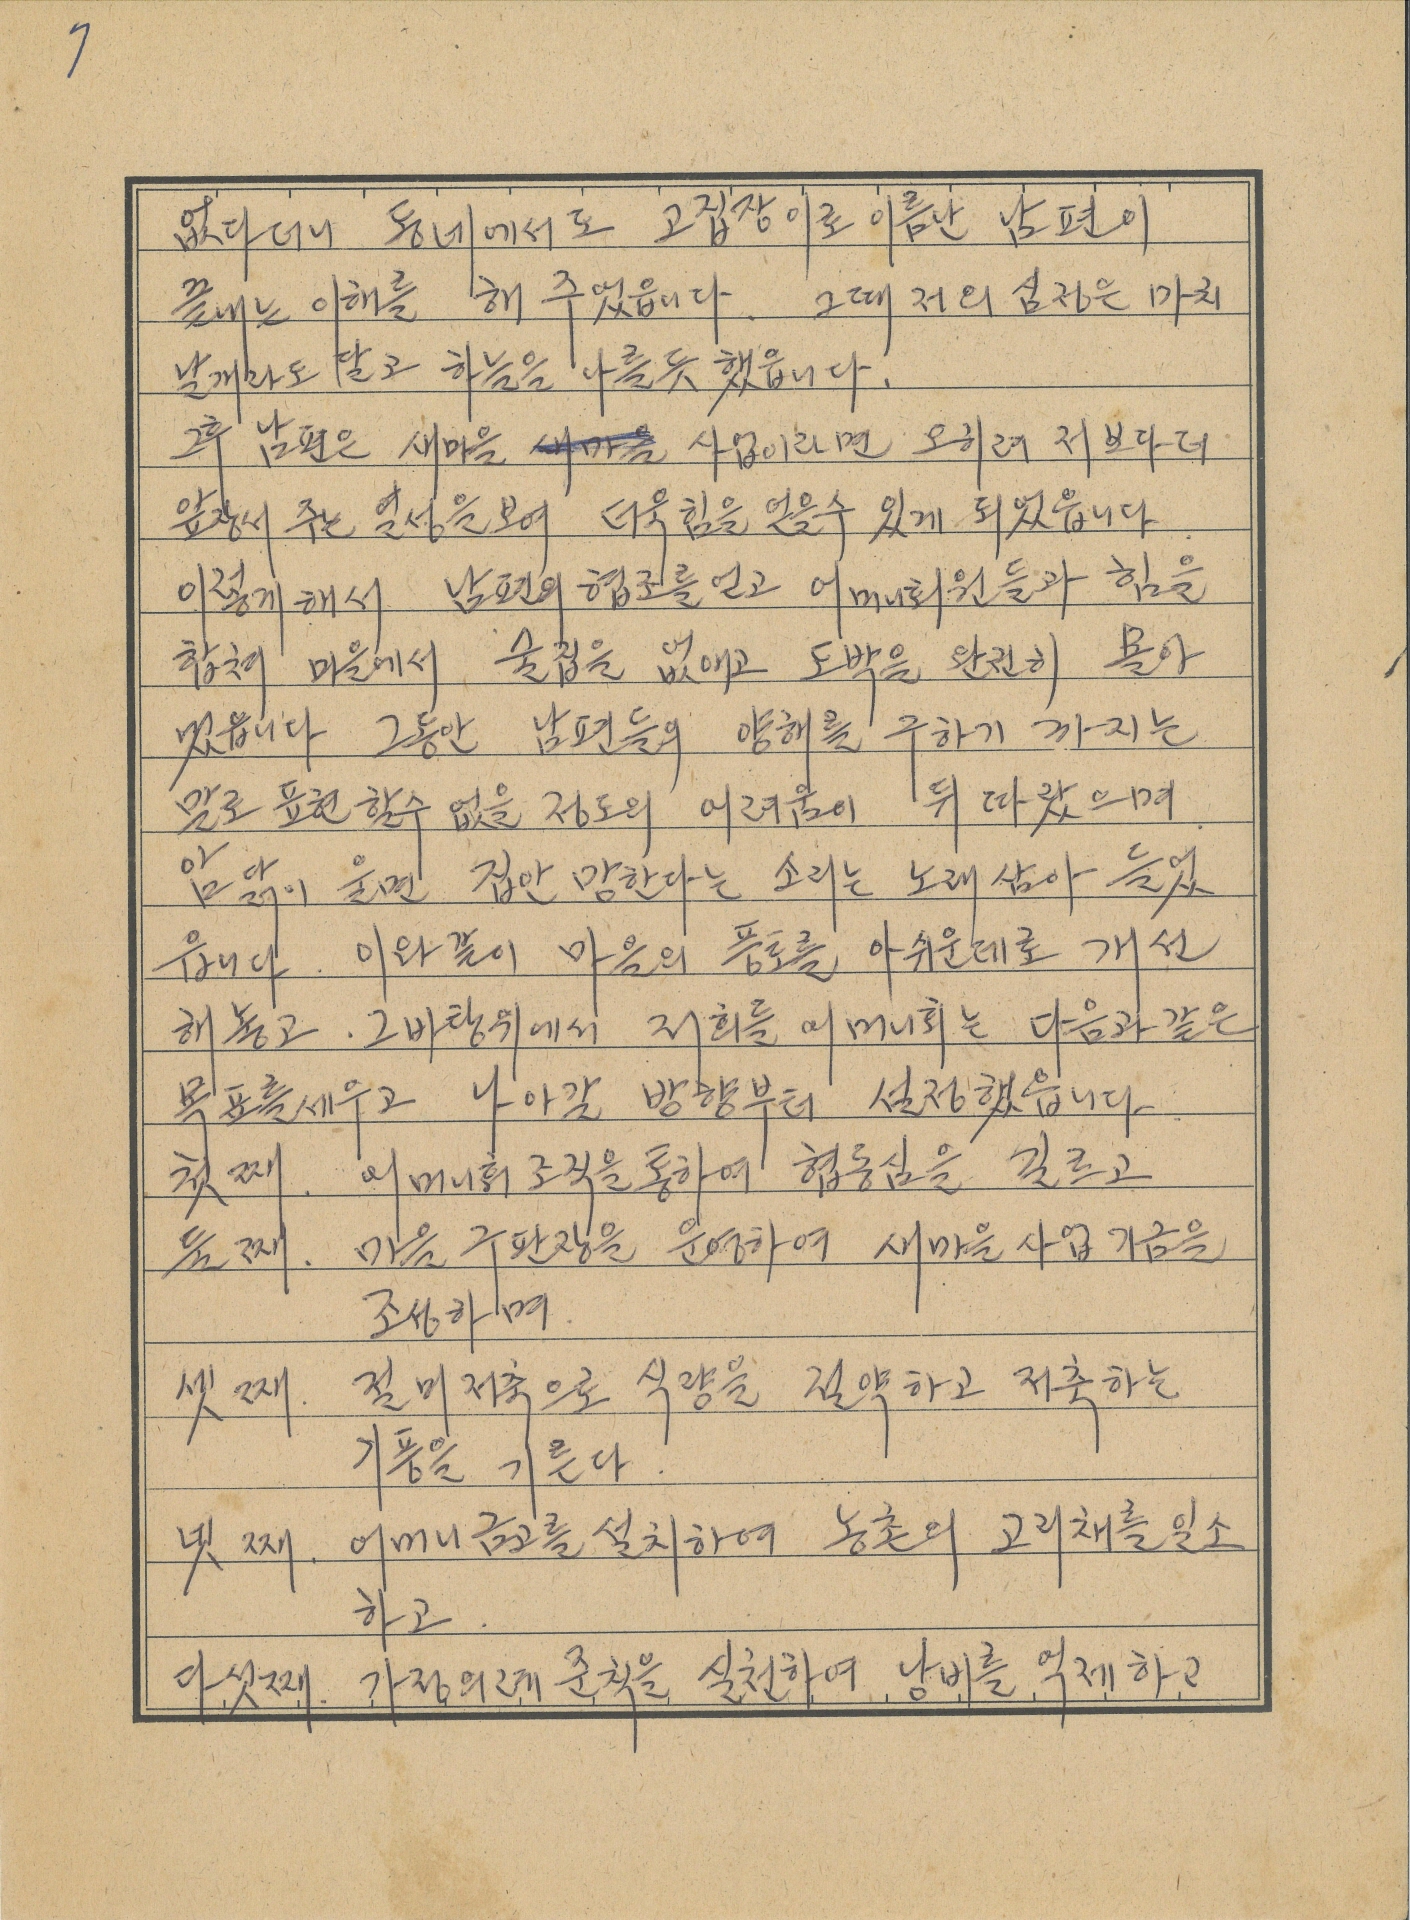 7
없다더니 동네에서도 고집장이로 이름난 남편이
끝내는 이해를 해 주었읍니다. 그때 저의 심정은 마치
날개라도 달고 하늘을 나를듯 했읍니다.
그후 남편은 새마을 새마을 사업이라면 오히려 저보다 더
앞장서 주는 열성을 보여 더욱 힘을 얻을수 있게 되었읍니다.
이렇게 해서 남편의 협조를 얻고 어머니회원들과 힘을
합쳐 마을에서 술집을 없애고 도박을 완전히 몰아
냈읍니다 그동안 남편들의 양해를 구하기 까지는
말로 표현 할수 없을 정도의 어려움이 뒤 따랐으며.
암닭이 울면 집안 망한다는 소리는 노래 삼아 들었
읍니다. 이와 같이 마을의 풍토를 아쉬운데로 개선
해 놓고. 그바탕위에서 저희들 어머니회는 다음과 같은
목표를 세우고 나아갈 방향부터 설정했읍니다.
첫째. 어머니회 조직을 통하여 협동심을 길르고
둘째. 마을 구판장을 운영하여 새마을 사업 기금을
조성하며.
셋째. 절미저축으로 식량을 절약하고 저축하는
기풍을 기른다.
넷째. 어머니 금고를 설치하여 농촌의 고리채를 일소
하고.
다섯째. 가정의례 준칙을 실천하여 낭비를 억제하고